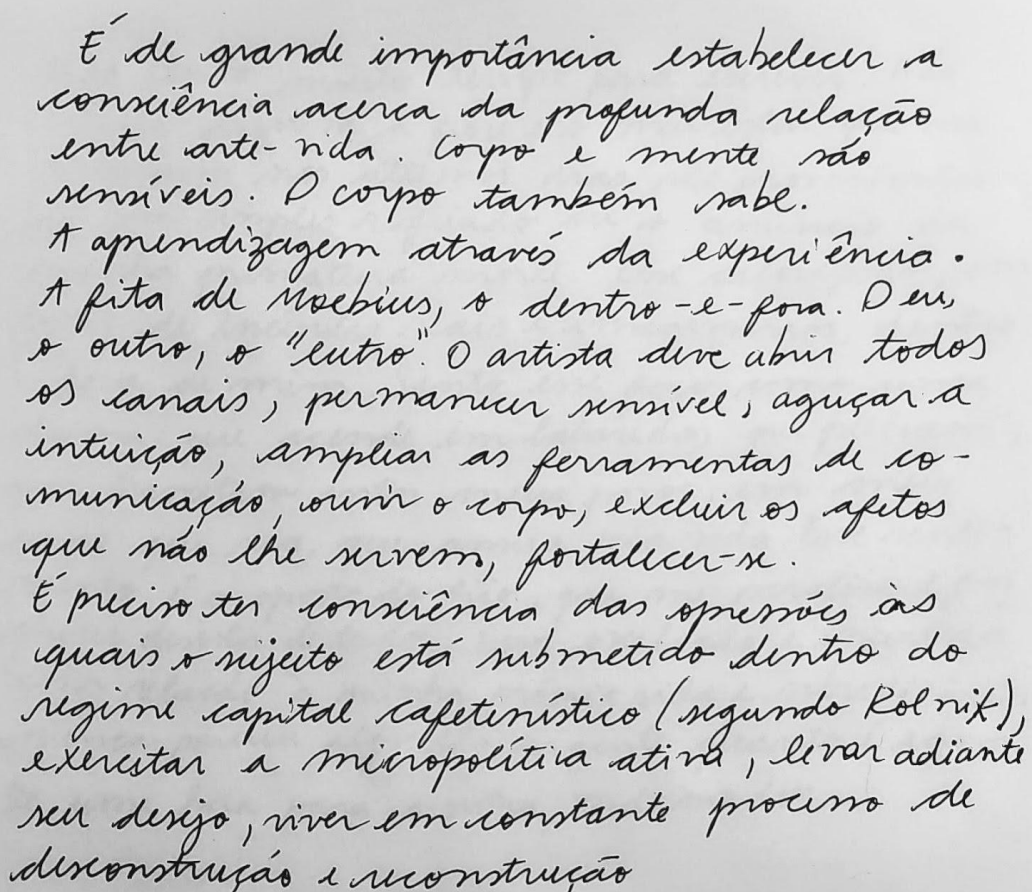 É de grande importância estabelecer a
consciência acerca da profunda relação
entre arte-vida. Corpo e mente são
sensíveis. O corpo também sabe.
A aprendizagem através da experiência.
A fita de Moebius, o dentro-e-fora. O eu,
o outro, o "eutro". O artista deve abrir todos
os canais, permanecer sensível, aguçar a
intuição, ampliar as ferramentas de co-
municação, ouvir o corpo, excluir os afetos
que não lhe servem, fortalecer-se.
É preciso ter consciência das opressões às
quais o sujeito está submetido dentro do
regime capital cafetinístico (segundo Rolnik),
exercitar a micropolítica ativa, levar adiante
seu desejo, viver em constante processo de
desconstrução e reconstrução